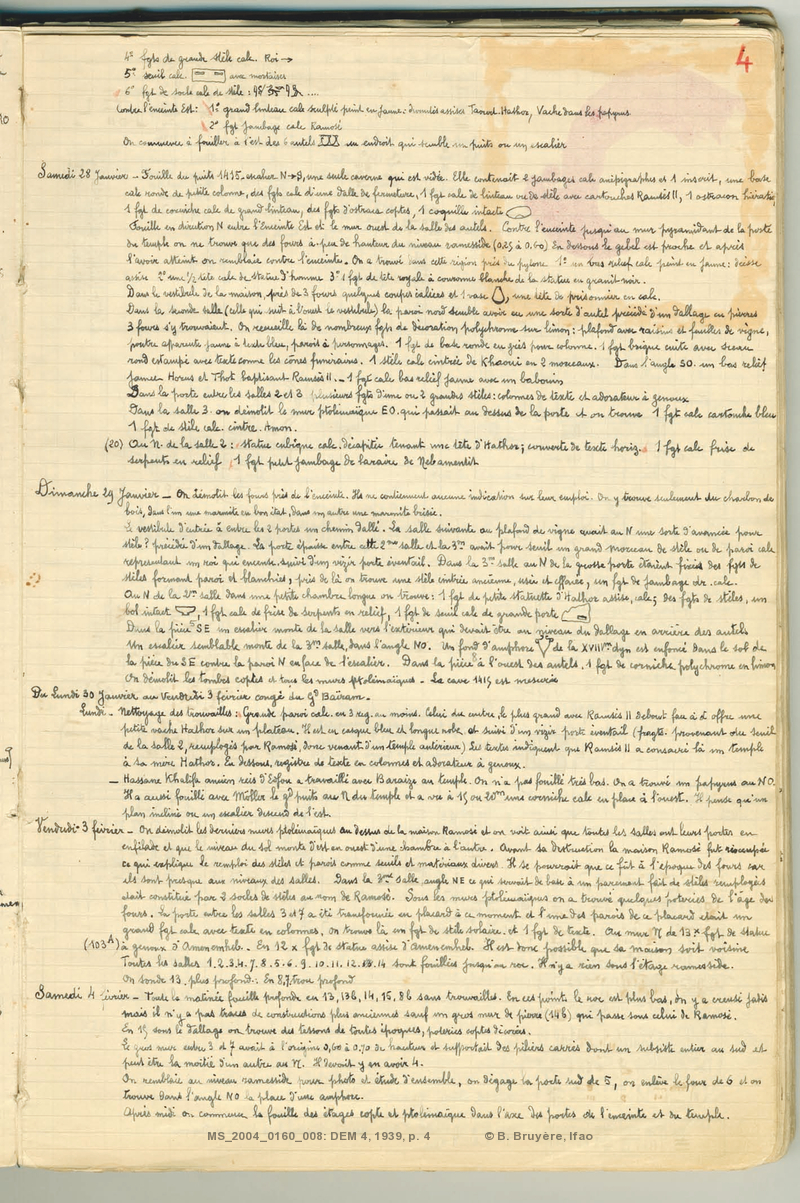 4
4° fgts de grande stèle calc. Roi →
5° seuil calc. aux mortaises
6° fgt de socle calc de stèle :
Contre l'enceinte Est: 1° grand linteau calc sculpté peint en jaune: divinités assises Taourt. Hathor, Vache dans les papyrus.
2° fgt jambage calc Ramosé
On commence à fouiller à l'est des 6 autels un endroit qui semble un puits ou un escalier
Samedi 28 Janvier - Fouille du puits 1415. escalier N→S, une seule caverne qui est vidée. Elle contenait 2 jambages calc anépigraphes et 1 inscrit, une base
calc ronde de petite colonne, des fgts calc d'une dalle de fermeture, 1 fgt calc de linteau ou de stèle avec cartouches Ramsès II, 1 ostracon hiératiq
1 fgt de corniche calc de grand linteau, des fgts d'ostraca coptes, 1 coquille intacte
Fouille en direction N entre l'Enceinte Est et le mur ouest de la salle des autels. Contre l'enceinte jusqu'au mur pyramidant de la porte
du temple on ne trouve que des fours à peu de hauteur du niveau ramesside (0,25 à 0.60) En dessous le gebel est proche et après
l'avoir atteint on remblaie contre l'enceinte. On a trouvé dans cette région près du pylone 1° un bas relief calc peint en jaune: déesse
assise 2° une ½ tête calc de statue d'homme 3° 1 fgt de tête royale à couronne blanche de la statue en granit noir.
Dans le vestibule de la maison, près de 3 fours quelques coupes calices et 1 vase, une tête de prisonnier en calc.
Dans la seconde salle (celle qui suit à l'ouest le vestibule) la paroi nord semble avoir eu une sorte d'autel précédé d'un dallage en pierres
3 fours s'y trouvaient. On recueille là de nombreux fgts de décoration polychrome sur limon: plafond avec raisins et feuilles de vigne,
poutre apparente jaune à texte bleu, parois à personnages. 1 fgt de base ronde en grès pour colonne. 1 fgt brique cuite avec sceau
rond estampé avec texte comme les cônes funéraires. 1 stèle calc cintrée de Khaoui en 2 morceaux. Dans l'angle SO. un bas relief
jaune Horus et Thot baptisant Ramsès II. - 1 fgt calc bas relief jaune avec un babouin
Dans la porte entre les salles 2 et 3 plusieurs fgts d'une ou 2 grandes stèles: colonnes de texte et adorateur à genoux
Dans la salle 3. on démolit le mur ptolémaïque EO. qui passait au dessus de la porte et on trouve 1 fgt calc cartouche bleu
1 fgt de stèle calc. cintre. Amon.
(20) Au N. de la salle 2: statue cubique calc. décapitée tenant une tête d'Hathor; couverte de texte horiz. 1 fgt calc frise de
serpents en relief 1 fgt petit jambage de laraire de Nebamentit
Dimanche 29 Janvier - On démolit les fours près de l'enceinte. Ils ne contiennent aucune indication sur leur emploi. On y trouve seulement du charbon de
bois, dans l'un une marmite en bon état, dans un autre une marmite brisée.
Le vestibule d'entrée a entre les 2 portes un chemin dallé. La salle suivante au plafond de vigne avait au N une sorte d'avancée pour
stèle? précédée d'un dallage. La porte épaisse entre cette 2ème salle et la 3ème avait pour seuil un grand morceau de stèle ou de paroi calc
représentant un roi qui encense. suivi d'un vizir porte éventail. Dans la 3ème salle au N de la grosse porte étaient fixés des fgts de
stèles formant paroi et blanchies; près de là on trouve une stèle cintrée ancienne, usée et effacée, un fgt de jambage dr. calc.
Au N de la 2ème salle dans une petite chambre longue on trouve: 1 fgt de petite statuette d'Hathor assise, calc; des fgts de stèles, un
bol intact, 1 fgt calc de frise de serpents en relief, 1 fgt de seuil calc de grande porte
Dans la pièce SE un escalier monte de la salle vers l'extérieur qui devait être au niveau du dallage en arrière des autels
Un escalier semblable monte de la 3ème salle, dans l'angle NO. Un fond d'amphore de la XVIIIème dyn est enfoncé dans le sol de
la pièce du SE contre la paroi N en face de l'escalier. Dans la pièce à l'ouest des autels. 1 fgt de corniche, polychrome en limon
On démolit les tombes coptes et tous les murs ptolémaïques. - La cave 1415 est mesurée
Du Lundi 30 Janvier au Vendredi 3 février congé du Gd Baïram.
Lundi. - Nettoyage des trouvailles: Grande paroi calc. en 3 reg. au moins. Celui du centre, le plus grand avec Ramsès II debout face à d offre une
petite vache Hathor sur un plateau. Il est en casque bleu et longue robe et suivi d'un vizir porte éventail (fragts. provenant du seuil
de la salle 2, remployés par Ramosé, donc venant d'un temple antérieur) Les textes indiquent que Ramsès II a consacré là un temple
à sa mère Hathor. En dessous, registre de texte en colonnes et adorateur à genoux.
- Hassane Khalifa ancien reis d'Edfou a travaillé avec Baraize au temple. On n'a pas fouillé très bas. On a trouvé un papyrus au NO.
Il a aussi fouillé avec Möller le gd puits au N du temple et a vu à 15 ou 20m une corniche calc en place à l'ouest. Il pense qu'un
plan incliné ou un escalier descend de l'est.
Vendredi 3 février - On démolit les derniers murs ptolémaïques au dessus de la maison Ramosé et on voit ainsi que toutes les salles ont leurs portes en
enfilade et que le niveau du sol monte d'est en ouest d'une chambre à l'autre. Avant sa destruction la maison Ramosé fut réoccupée
ce qui explique le remploi des stèles et parois comme seuils et matériaux divers. Il se pourrait que ce fût à l'époque des fours car
ils sont presque aux niveaux des salles. Dans la 3ème salle angle NE ce qui servait de base à un parement fait de stèles remployées
était constitué par 2 socles de stèles au nom de Ramosé. Sous les murs ptolémaïques on a trouvé quelques poteries de l'âge des
fours. La porte entre les salles 3 et 7 a été transformée en placard à ce moment et l'une des parois de ce placard était un
grand fgt calc avec texte en colonnes, on trouve là un fgt de stèle solaire et 1 fgt de texte. Au mur N de 13 x fgt de statue
(103A) à genoux d'Amenemheb. - En 12 x fgt de statue assise d'Amenemheb. Il est donc possible que sa maison soit voisine
Toutes les salles 1.2.3.4.7.8.5.6.9.10.11.12.13.14 sont fouillées jusqu'au roc. Il n'y a rien sous l'étage ramesside.
On sonde 13, plus profond. En 8, trou profond
Samedi 4 février - Toute la matinée fouille profonde en 13, 13b, 14, 15, 8b sans trouvailles. En ces points le roc est plus bas, on y a creusé jadis
mais il n'y a pas traces de constructions plus anciennes sauf un gros mur de pierre (14b) qui passe sous celui de Ramosé.
En 15 sous le dallage on trouve des tessons de toutes époques, poteries coptes décorées.
Le gros mur entre 3 et 7 avait à l'origine 0,60 à 0.70 de hauteur et supportait des piliers carrés dont un subsiste entier au sud et
peut être la moitié d'un autre au N. Il devait y en avoir 4.
On remblaie au niveau ramesside pour photo et étude d'ensemble, on dégage la porte sud de 5, on enlève le four de 6 et on
trouve dans l'angle NO la place d'une amphore.
Après midi on commence la fouille des étages copte et ptolémaïque dans l'axe des portes de l'enceinte et du temple.
MS_2004_0160_008: DEM 4, 1939, p. 4 © B. Bruyère, Ifao